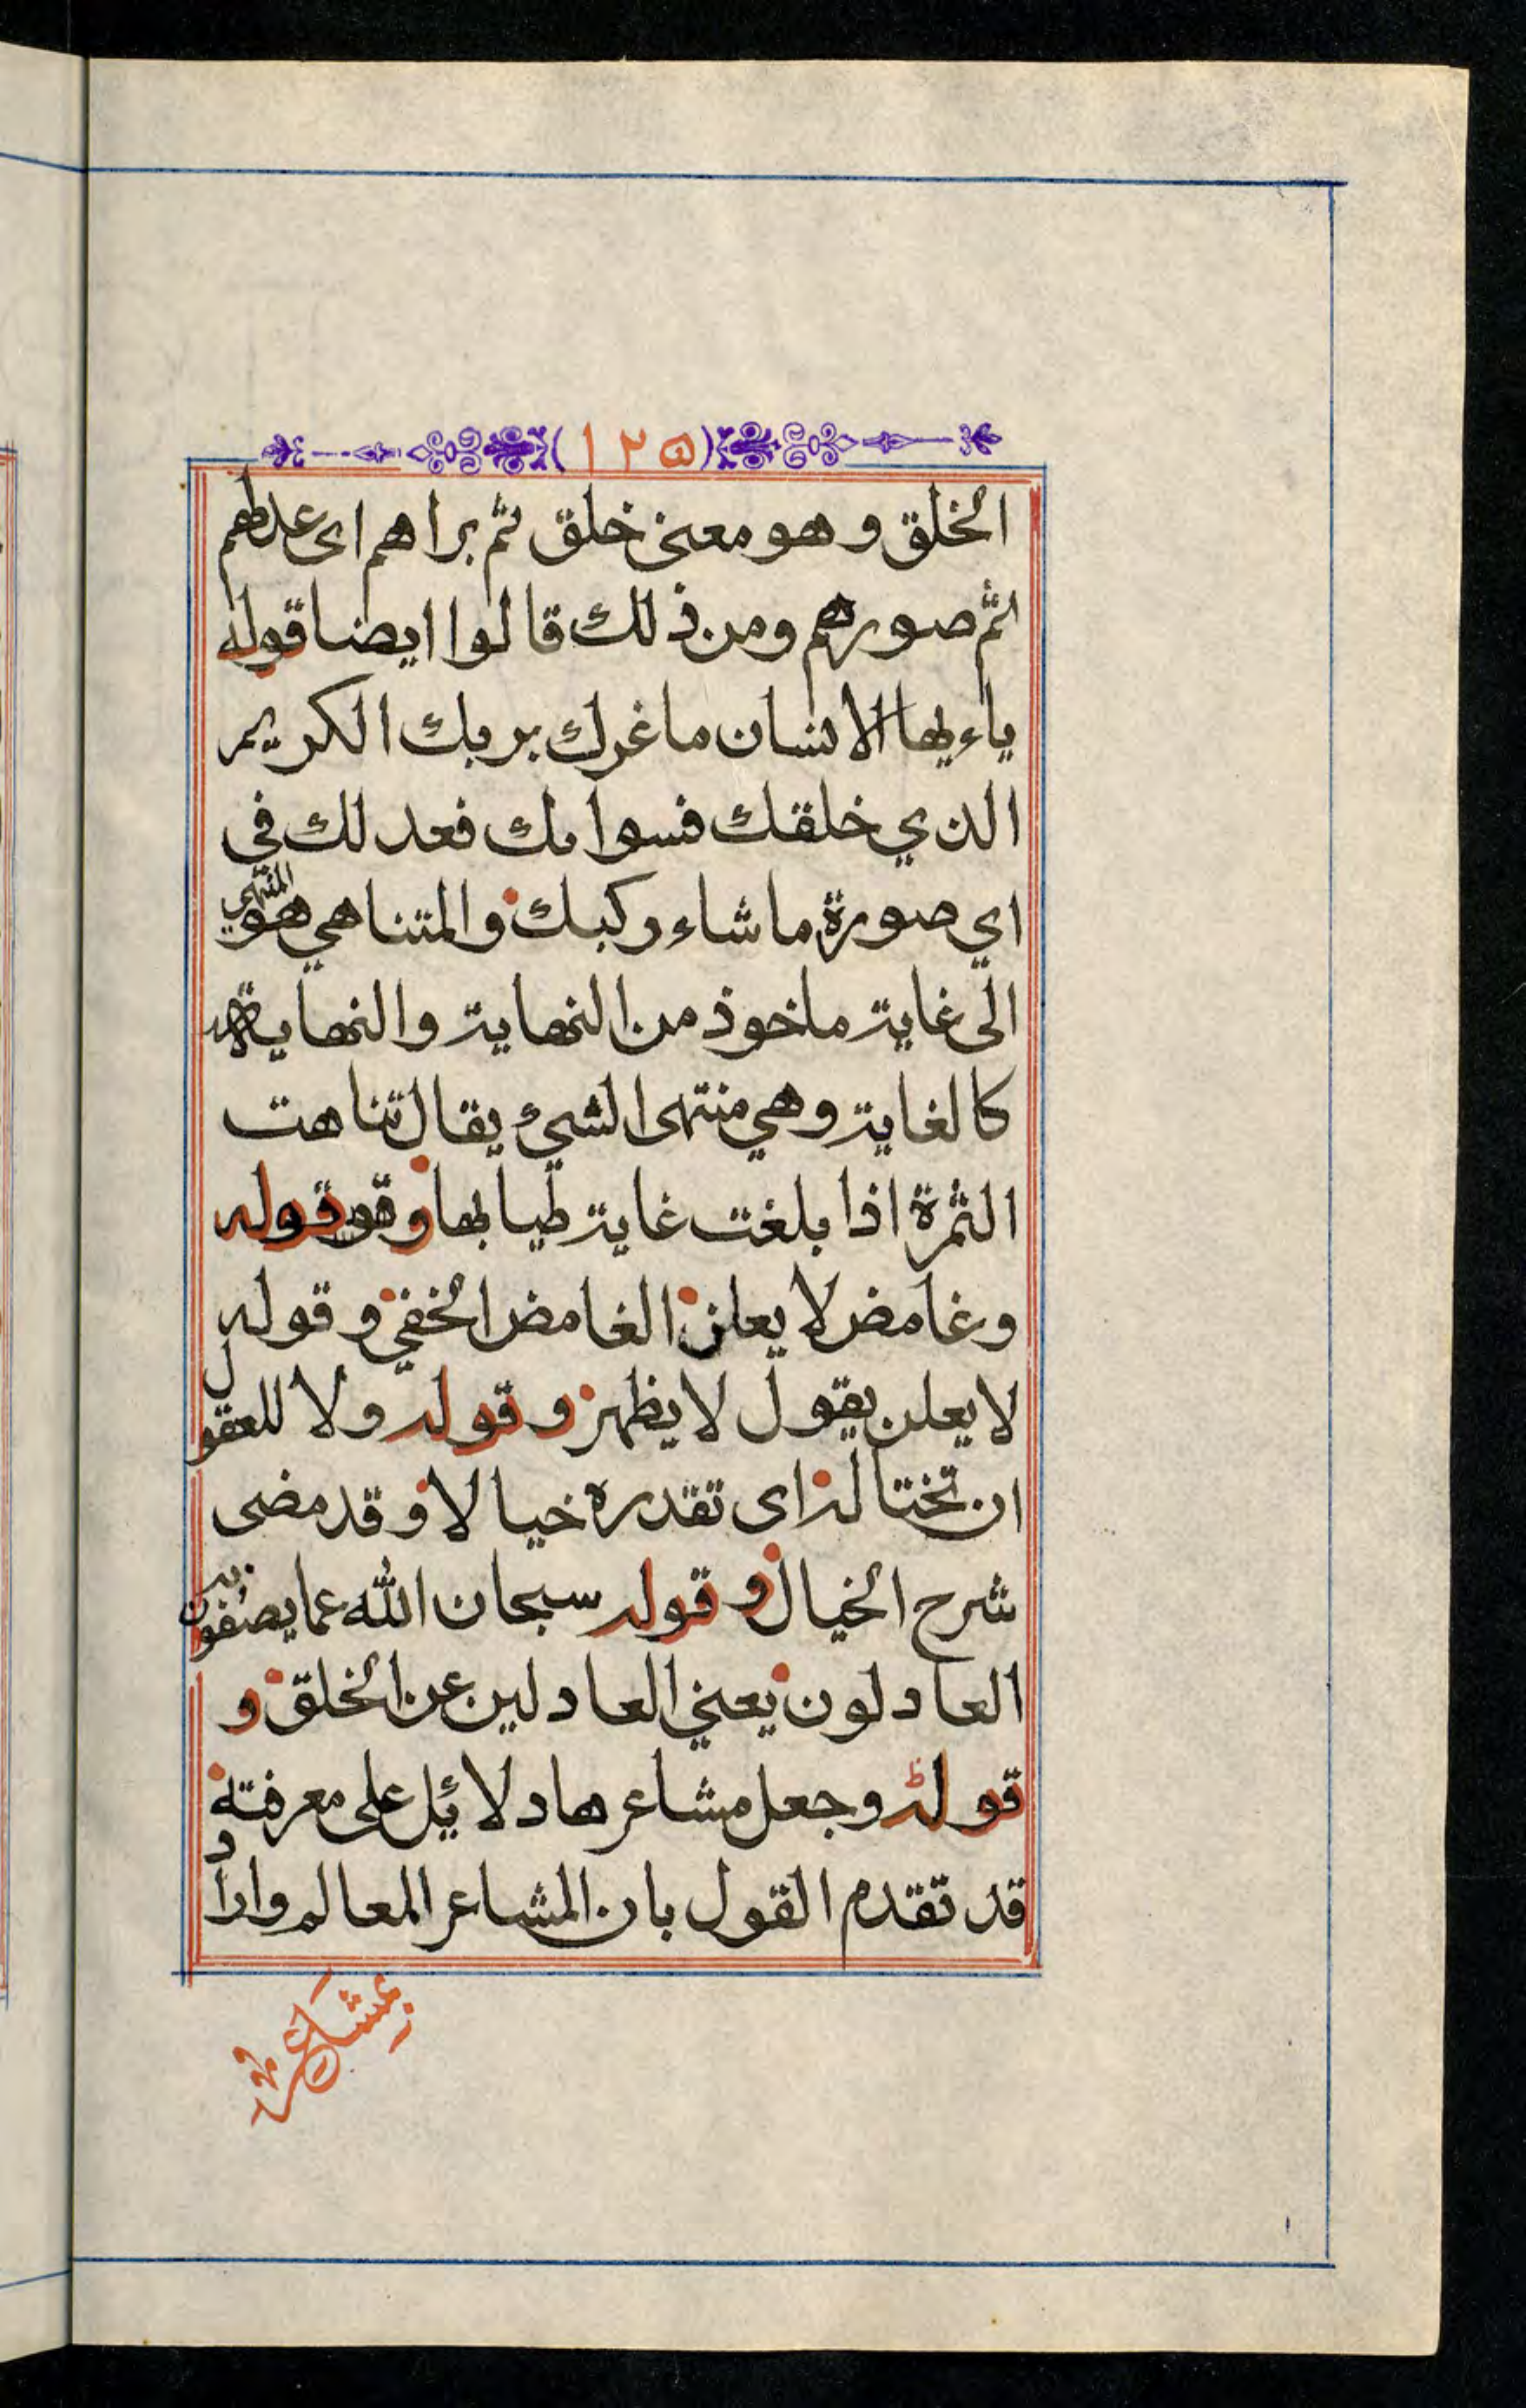 (١٢٥)
الخلق وهو معنى خلق ثم براهم اى عدلهم
ثم صورهم ومن ذلك قالوا ايضا قوله
ياءيها الانسان ما غرك بربك الكريم
الذي خلقك فسواىك فعدلك في
اي صورة ما شاء ركبك والمتناهي هو المنتهي
الى غاية ماخوذ من النهاية والنهاية
كالغاية وهي منتهى الشيئ يقال تناهت
الثمرة اذا بلغت غاية طيابها وقوله
وغامض لا يعلن الغامض الخفي وقوله
لا يعلن يقول لا يظهر وقوله ولا للعقول
ان تختاله اى تقدره خيالا وقد مضى
شرح الخيال وقوله سبحان الله عما يصفون به
العادلون يعني العادلين عن الخلق و
قوله وجعل مشاعرها دلائل على معرفته و
قد تقدم القول بان المشاعر المعالم واراد
بمشاعر